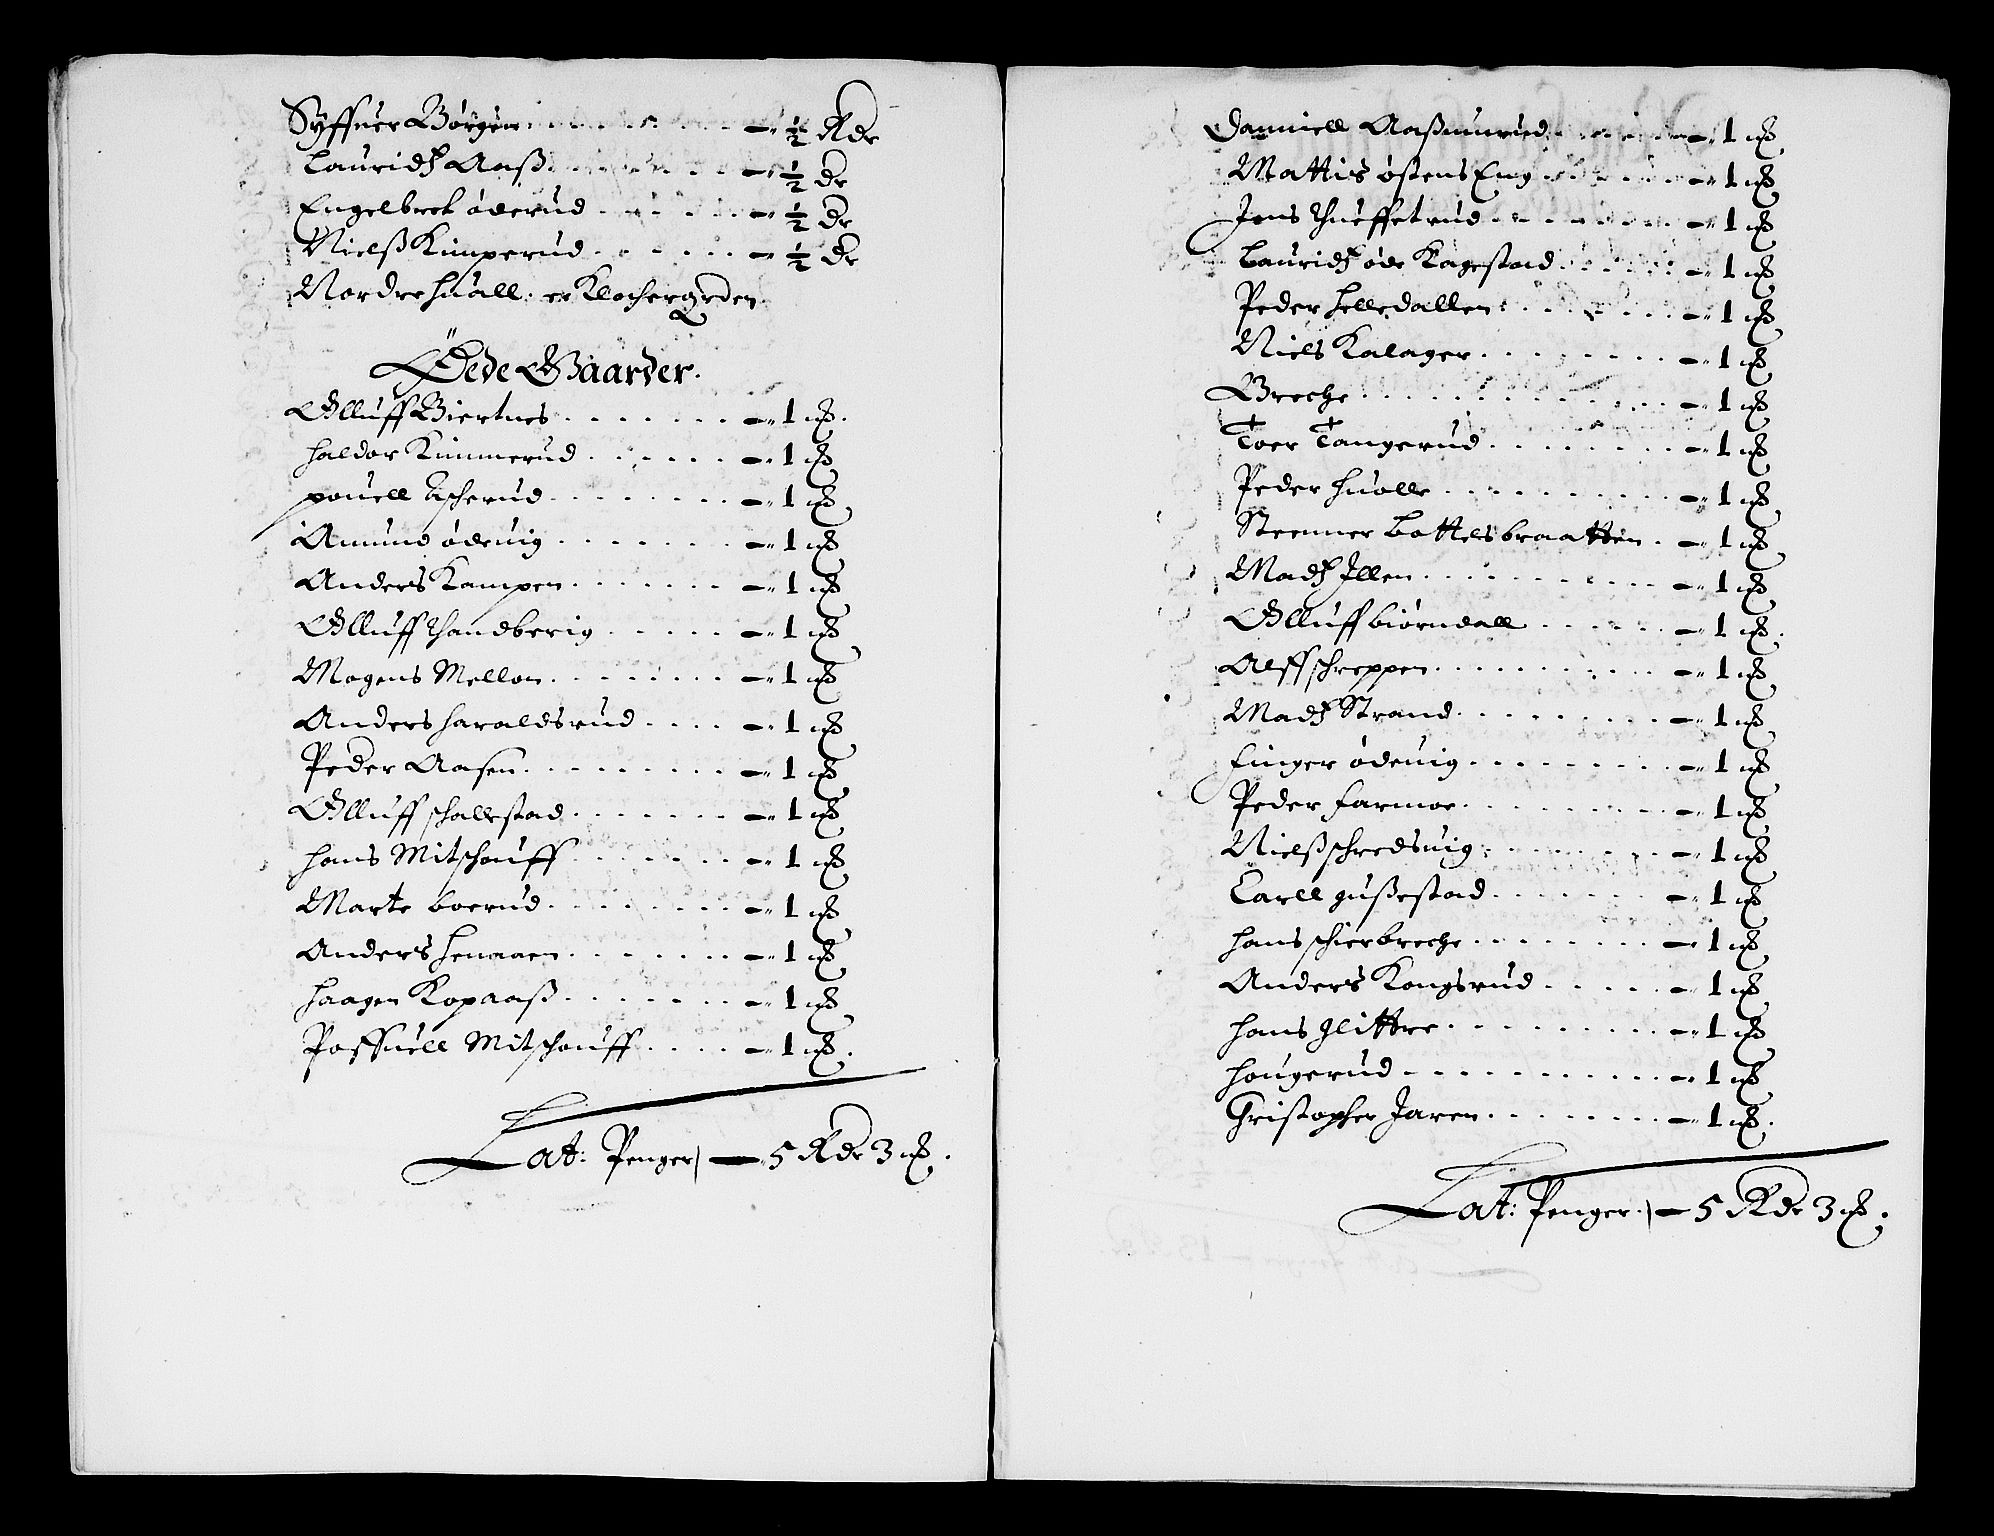 Syffuer Børgen - ½ Rdr
Lauridtz Aaß - ½ dr
Engelbret øderud - ½ dr
Nielß Kimperud - ½ dr
Nordre huall er Klochergrden

Øede Gaarder.
Olluff Biertnes - 1 ort.
Haldor Kimmerud - 1 ort
Pouell Ascherud - 1 ort
Amund ødeuig - 1 ort
Anders Kampen - 1 ort
Olluff Thandberig - 1 ort
Mogens Mellom - 1 ort
Anders Haraldsrud - 1 ort
Peder Aasen - 1 ort
Olluff schallestad - 1 ort
Hans Mitschouff - 1 ort
Marte boerud - 1 ort
Anders Henaaen - 1 ort
Haagen Kopaaß - 1 ort
Poffuell Mitschouff - 1 ort.

Lat: Penger - 5 Rdr 3 ort.

Danniell Aaßmunrud - 1 ort
Mattis østens Eng - 1 ort
Jens Thueffetrud - 1 ort
Lauridtz øde Ragestad - 1 ort
Peder Helledallen - 1 ort
Niels Kalager - 1 ort
Breche - 1 ort
Toer Tangerud - 1 ort
Peder Hualle - 1 ort
Steener bottelsbraatten - 1 ort
Madtz Jllen - 1 ort
Olluff biørndall - 1 ort.
Alff schreppen - 1 ort
Madtz Strand - 1 ort
Einger ødeuig - 1 ort
Peder Farmoe - 1 ort
Nielß schredsuig - 1 ort
Carll gußestad - 1 ort
Hans schierbreche - 1 ort
Anders Kongsrud - 1 ort
Hans glittre - 1 ort
Hougerud - 1 ort
Christopher Jaren - 1 ort.

Lat: Penger - 5 Rdr 3 ort.